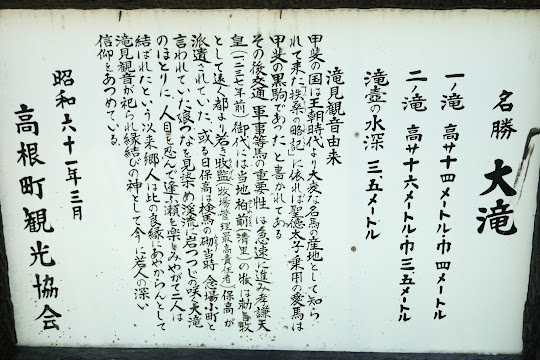 名勝 大滝
一ノ滝 高サ十四メートル巾四メートル
二ノ滝 高サ十六メートル巾三.五メートル
滝壺の水深 三.五メートル
滝見観音由来
甲斐の国は王朝時代より大変な名馬の産地として知ら
れて来た「扶桑の略記」に依れば聖徳太子乗用の愛馬は
甲斐の黒駒であったと書かれてある
その後交通軍事等馬の重要性は急速に進み孝謙天
皇(一二三七年前)御代には当地柏前(清里)の牧は勅
として遠く都より若き牧監(牧場管理最高責任者)保高が
派遣されていた、或る日保高は検馬の砌当時念場小町と
言われていた娘つなを見染め渓流に岩つつじの咲く大滝
のほとりに、人目を忍んで逢ふ瀬を楽しみやがて二人は
結ばれたという以来郷人は此の良縁にあやからんとして
滝見観音が祀られ縁結びの神として今に若人の深い
信仰をあつめている。
昭和六十一年三月
高根町観光協会